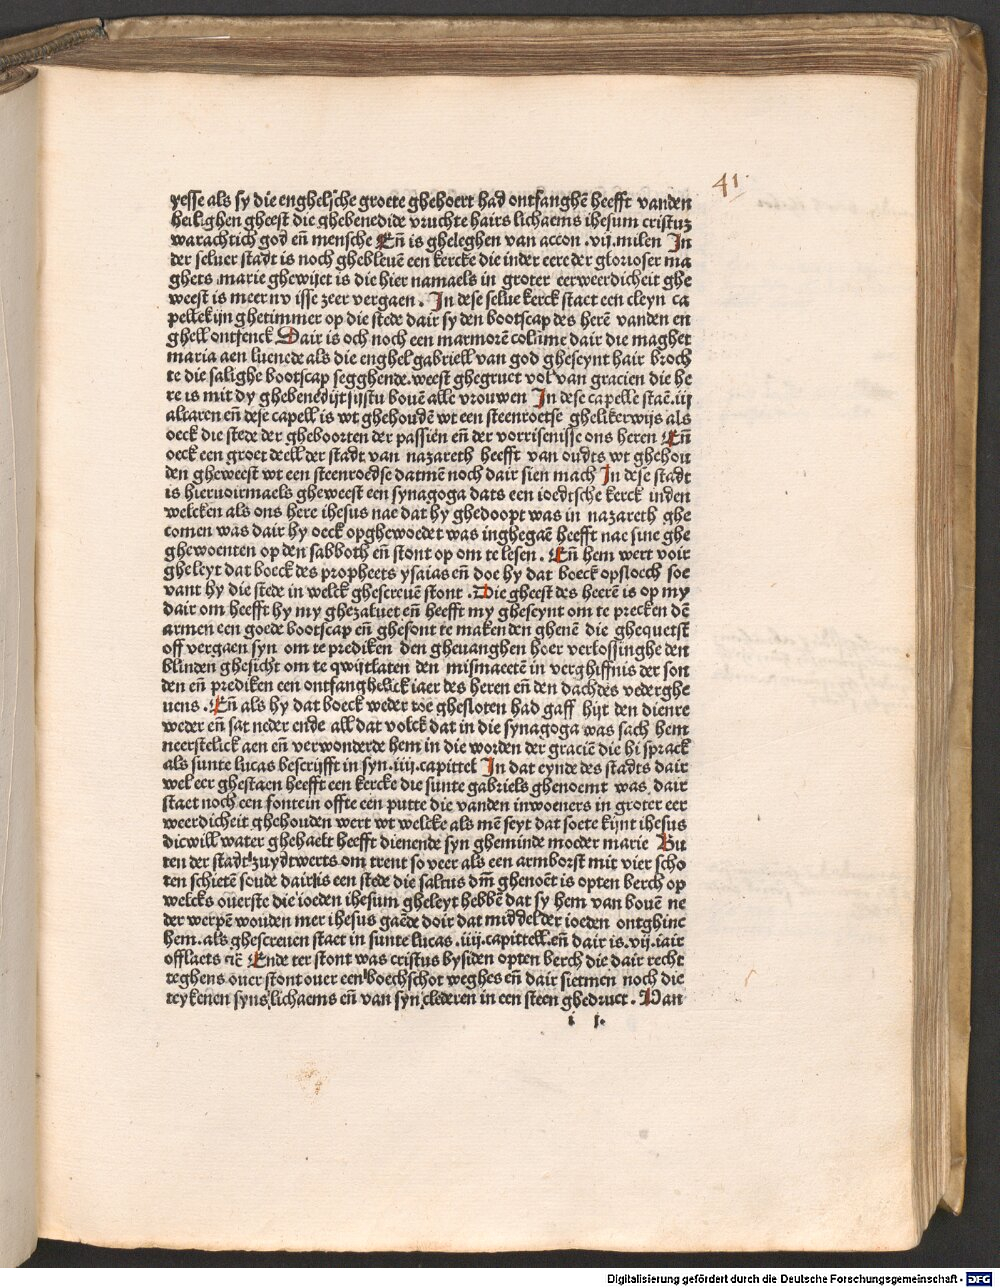 41.
yesse als sy die enghelsche groete ghehoert had ontfanghē heefft vanden
heilighen gheest die ghebenedide vruchte hairs lichaems ihesum cristuz
warachtich god eñ mensche Eñ is gheleghen van accon .vij. milen In
der seluer stadt is noch ghebleuē een kercke die inder eere der glorioser ma
ghets marie ghewijet is die hier namaels in groter eerweerdicheit ghe
weest is meer nv isse zeer vergaen . In dese selue kerck staet een cleyn ca
pellekijn ghetimmer op die stede dair sy den bootscap des herē vanden en
ghell ontfenck Dair is och noch een marmorē colūme dair die maghet
maria aen luenede als die enghel gabriell van god gheseynt hair broch
te die salighe bootscap segghende.weest ghegruet vol van gracien die he
re is mit dy ghebenedijt sijstu bouē alle vrouwen In dese capelle staē.iij
altaren eñ dese capell is wt ghehoudē wt een steenroetse ghelikerwijs als
oeck die stede der gheboorten der passien eñ der vorrisenisse ons heren Eñ
oeck een groet deell der stadt van nazareth heefft van oudts wt ghehou
den gheweest wt een steenroedse datmen noch dair sien mach In dese stadt
is hieruoirmaels gheweest een synagoga dats een ioedtsche kerck inden
welcken als ons here ihesus nae dat hy ghedoopt was in nazareth ghe
comen was dair hy oeck opghewoedet was inghegaē heefft nae sine ghe
ghewoenten op den sabboth eñ stont op om te lesen . Eñ hem wert voir
gheleyt dat boeck des propheets ysaias eñ doe hy dat boeck opsloech soe
vant hy die stede in welck ghescreuē stont . Die gheest des heerē is op my
dair om heefft hy my ghezaluet eñ heefft my gheseynt om te precken dē
armen een goede bootscap eñ ghesont te maken den ghenē die ghequetst
off vergaen syn om te prediken den gheuanghen hoer verlossinghe den
blinden ghesicht om te qwijtlaten den mismacetē in verghiffnis der son
den eñ prediken een ontfanghelick iaer des heren eñ den dach des vederghe
uens . Eñ als hy dat boeck weder toe ghesloten had gaff hijt den dienre
weder eñ sat neder ende all dat volck dat in die synagoga was sach hem
neerstelick aen eñ verwonderde hem in die worden der graciē die hi sprack
als sunte lucas bescrijfft in syn .iiij. capittel In dat eynde des stadts dair
wel eer ghestaen heefft een kercke die sunte gabriels ghenoemt was dair
staet noch een fontein offte een putte die vanden inwoeners in groter eer
weerdicheit ghehouden wert wt welcke als mē seyt dat soete kijnt ihesus
dicwill water ghehaelt heefft dienende syn gheminde moeder marie Bu
ten der stadt zuydtwerts om trent so veer als een armborst mit vier scho
ten schietē soude dair is een stede die saltus dm̄ ghenoēt is opten berch op
welcks ouerste die ioeden ihesum gheleyt hebbē dat sy hem van bouē ne
der werpē wouden mer ihesus gaēde doir dat middel der ioeden ontghinc
hem.als ghescreuen staet in sunte lucas .iiij.capittell.eñ dair is .vij.iair
offlaets ⁊c̄ Ende ter stont was cristus bysiden opten berch die dair recht
teghens ouer stont ouer een boechschot weghes eñ dair sietmen noch die
teykenen syns lichaems eñ van syn clederen in een steen ghedruct . Van
i j.
Digitalisierung gefördert durch die Deutsche Forschungsgemeinschaft - DFG